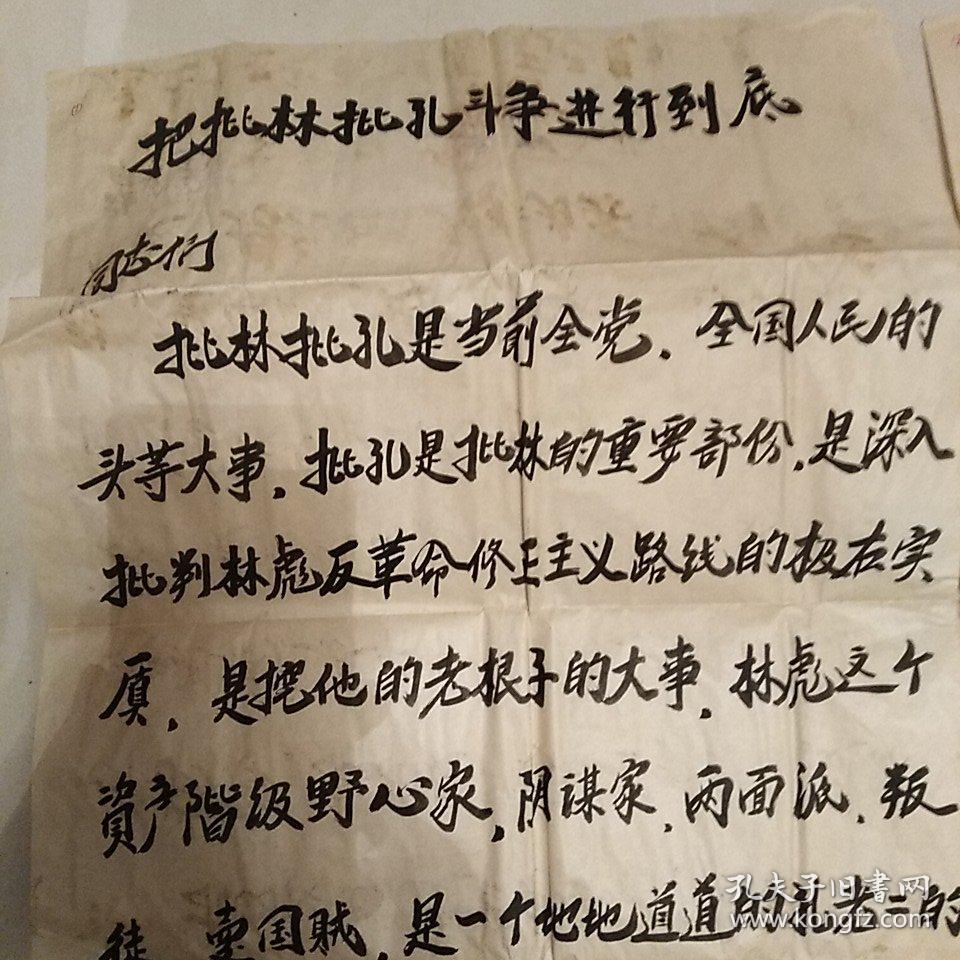 (1)
把批林批孔斗争进行到底
同志们
批林批孔是当前全党,全国人民的
头等大事,批孔是批林的重要部份,是深入
批判林彪反革命修正主义路线的极右实
质,是挖他的老根子的大事,林彪这个
資产階级野心家,阴谋家,两面派,叛
徒,卖国贼,是一个地地道道的孔老二的
孔夫子旧书网
www.kongfz.com